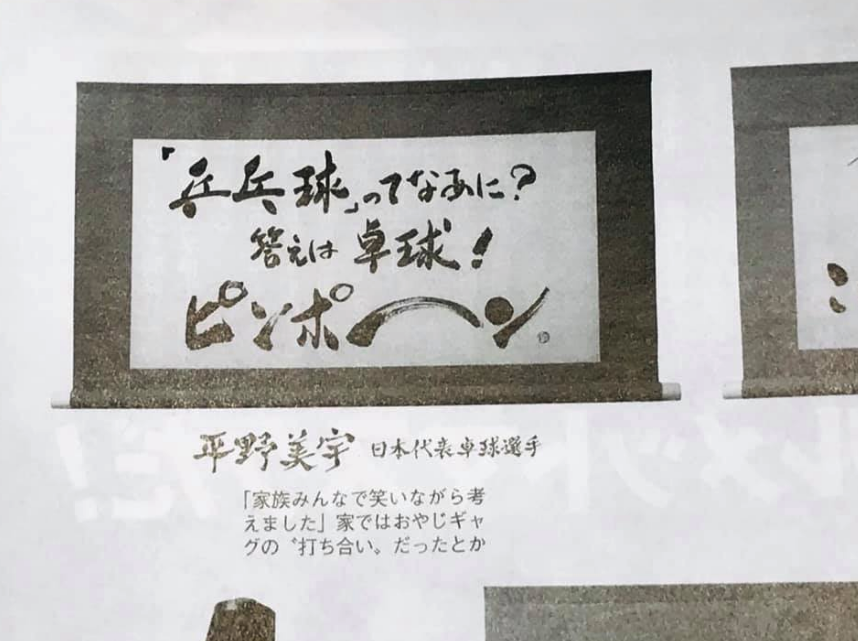 「乒乓球」ってなあに?
答えは卓球!
ピンポーン
平野美宇 日本代表卓球選手
「家族みんなで笑いながら考
えました」家ではおやじギャ
グの〝打ち合い〟だったとか